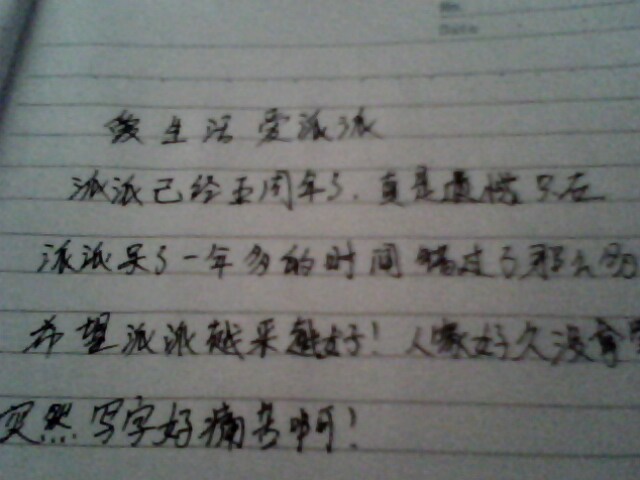 No.
Date
爱生活 爱派派
派派已经五周年了.真是遗憾只在
派派呆了一年多的时间 错过了那么多
希望派派越来越好!人家好久没拿
突然...写字好痛苦啊!